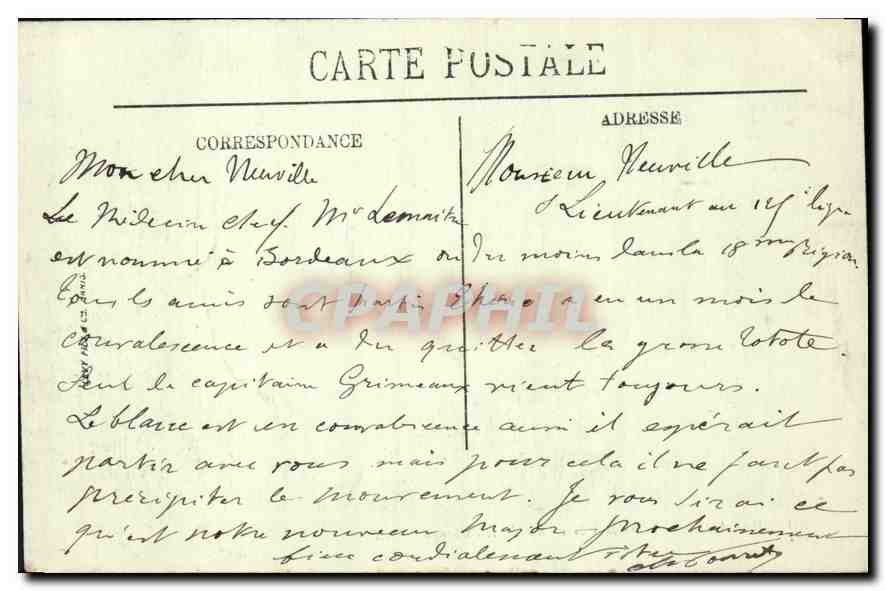 CARTE POSTALE
CORRESPONDANCE
ADRESSE
Mon cher Neuville
Monsieur Neuville
S/Lieutenant au 125e ligne
Le Médecin chef Mr Lemaitre
est nommé à Bordeaux ou du moins dans la 18me Région
tous les amis sont partis a eu un mois de
convalescence et a du quitter la grosse Totote.
Seul le capitaine Grimeaux vient toujours.
Leblanc est en convalescence aussi il espérait
partir avec vous mais pour cela il ne faut pas
precipiter le mouvement. Je vous dirai ce
qu'est notre nouveau Major prochainement
bien cordialement vôtre
LEVY FILS & CO. PARIS
CPAPHIL